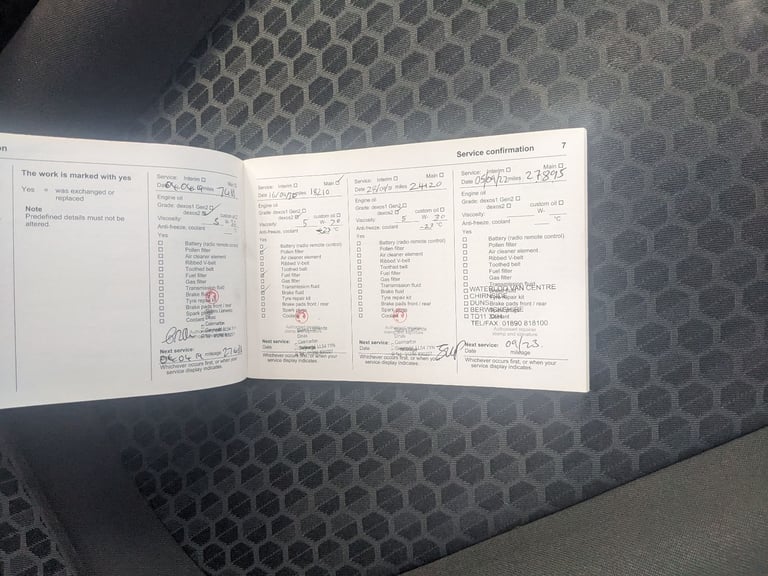 on
The work is marked with yes
Yes = was exchanged or
replaced
Note
Predefined details must not be
altered.
Service: Interim
Date 04 04 miles
Engine oil
Grade: dexos1 Gen2
dexos2
custom oil
Viscosity: 5
Anti-freeze, coolant
Yes
Battery (radio remote control)
Pollen filter
Air cleaner element
Ribbed V-belt
Toothed belt
Fuel filter
Gas filter
Transmission fluid
Brake fluid
Tyre repair kit
Brake pads front / rear
Spark plugs
Coolant
Next service:
mileage
Whichever occurs first, or when your
service display indicates.
Service: Interim Main
Date miles 18210
Engine oil
Grade: dexos1 Gen2
dexos2 custom oil
Viscosity: 5 W- 30
Anti-freeze, coolant °C
Yes
Battery (radio remote control)
Pollen filter
Air cleaner element
Ribbed V-belt
Toothed belt
Fuel filter
Gas filter
Transmission fluid
Brake fluid
Tyre repair kit
Brake pads front / rear
Spark plugs
Coolant
Authorised repairer
stamp and signature
Next service:
Date mileage
Whichever occurs first, or when your
service display indicates.
Service confirmation 7
Service: Interim Main
Date miles 24120
Engine oil
Grade: dexos1 Gen2
dexos2 custom oil
Viscosity: 5 W- 30
Anti-freeze, coolant °C
Yes
Battery (radio remote control)
Pollen filter
Air cleaner element
Ribbed V-belt
Toothed belt
Fuel filter
Gas filter
Transmission fluid
Brake fluid
Tyre repair kit
Brake pads front / rear
Spark plugs
Coolant
Next service:
Date
Whichever occurs first, or when your
service display indicates.
Service: Interim Main
Date 05/09/22 miles 27895
Engine oil
Grade: dexos1 Gen2
dexos2 custom oil
Viscosity: W-
Anti-freeze, coolant °C
Yes
Battery (radio remote control)
Pollen filter
Air cleaner element
Ribbed V-belt
Toothed belt
Fuel filter
Gas filter
Transmission fluid
WATERLOO VAN CENTRE
CHIRNSIDE
Tyre repair kit
DUNS
Brake pads front / rear
BERWICKSHIRE
TD11 3XH
TEL/FAX: 01890 818100
Authorised repairer
stamp and signature
Next service: 09/23
Date mileage
Whichever occurs first, or when your
service display indicates.